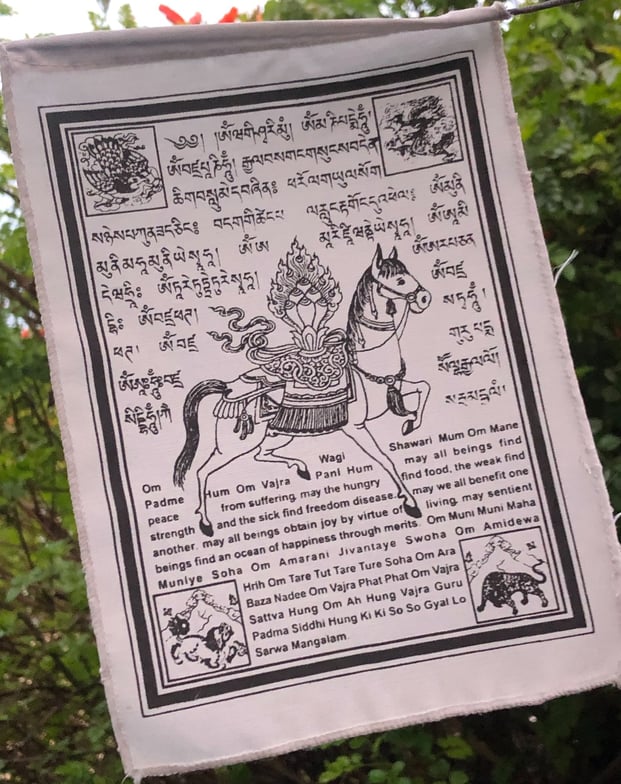 ༄༅། །ཨོཾ་ཝ་གི་ཤྭ་རི་མུཾ། ཨོཾ་མ་ཎི་པདྨེ་ཧཱུྃ།
ཨོཾ་བཛྲ་པཱ་ཎི་ཧཱུྃ། རྒྱལ་བས་གང་གསུངས་བདེན་
ཚིག་བསླུ་མེད་བཞིན༔ ཕ་རོལ་གཡུལ་སོག
ཨོཾ་མུནི་
མུནི་མཧཱ་མུནིཡེ་སྭཱཧཱ། ཨོཾ་ཨ
ཨོཾ་ཏཱརེ་ཏུཏྟཱརེ་ཏུརེ་སྭཱཧཱ། ཨོཾ་བཛྲ་
ཧྲཱིཿ ཨོཾ་བཛྲ་ཕཊ། སཏྭ་ཧཱུྃ།
ཕཊ། ཨོཾ་བཛྲ གུ་རུ་པདྨ་
ཨོཾ་ཨཱཿཧཱུྃ་བཛྲ་
སིདྡྷི་ཧཱུྃ། ཀི་
Om Wagi Shawari Mum Om Mane
Padme Hum Om Vajra Pani Hum may all beings find
peace from suffering, may the hungry find food, the weak find
strength and the sick find freedom disease, may we all benefit one
another, may all beings obtain joy by virtue of living, may sentient
beings find an ocean of happiness through merits. Om Muni Muni Maha
Muniye Soha Om Amarani Jivantaye Swoha Om Amidewa
Hrih Om Tare Tut Tare Ture Soha Om Ara
Baza Nadee Om Vajra Phat Phat Om Vajra
Sattva Hung Om Ah Hung Vajra Guru
Padma Siddhi Hung Ki Ki So So Gyal Lo
Sarwa Mangalam.